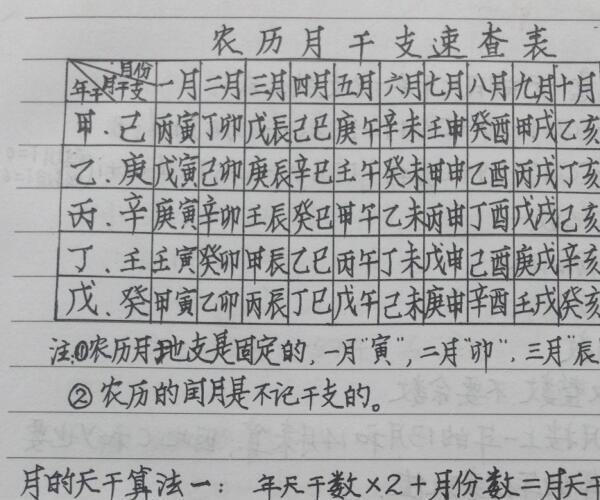 农历月干支速查表
年干 月干支 月份 一月 二月 三月 四月 五月 六月 七月 八月 九月 十月
甲、己 丙寅 丁卯 戊辰 己巳 庚午 辛未 壬申 癸酉 甲戌 乙亥
乙、庚 戊寅 己卯 庚辰 辛巳 壬午 癸未 甲申 乙酉 丙戌 丁亥
丙、辛 庚寅 辛卯 壬辰 癸巳 甲午 乙未 丙申 丁酉 戊戌 己亥
丁、壬 壬寅 癸卯 甲辰 乙巳 丙午 丁未 戊申 己酉 庚戌 辛亥
戊、癸 甲寅 乙卯 丙辰 丁巳 戊午 己未 庚申 辛酉 壬戌 癸亥
注:①农历月地支是固定的,一月"寅",二月"卯",三月"辰
②农历的闰月是不记干支的。
月的天干算法一:年天干数×2+月份数=月天干